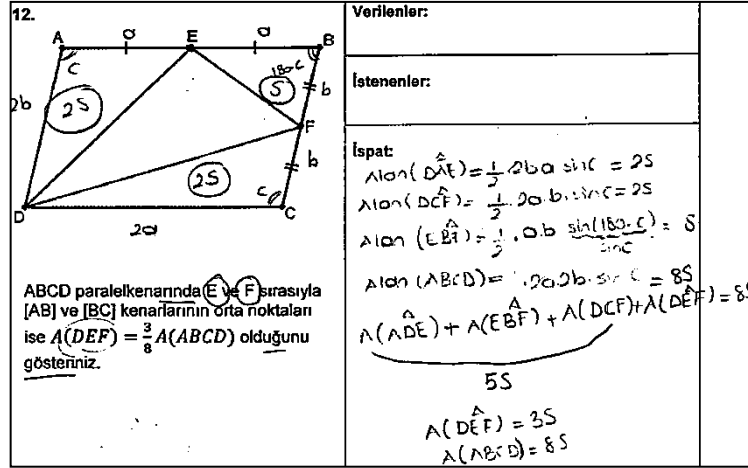 12.
A
a
E
a
B
c
180-c
S
b
2b
2S
F
2S
b
c
D
2a
C
ABCD paralelkenarında E ve F sırasıyla
[AB] ve [BC] kenarlarının orta noktaları
ise A(DEF) = 3/8 A(ABCD) olduğunu
gösteriniz.
Verilenler:
İstenenler:
İspat:
Alan(DAE) = 1/2 . 2b a sinc = 2S
Alan(DCF) = 1/2 . 2a.b.sinc = 2S
Alan(EBF) = 1/2 . a.b sin(180-c) = S
sinc
Alan(ABCD) = 2a2b.sinc = 8S
A(ADE) + A(EBF) + A(DCF) + A(DEF) = 8S
5S
A(DEF) = 3S
A(ABCD) = 8S